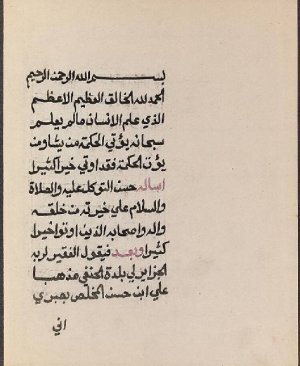 بسم الله الرحمن الرحيم
الحمد لله الخالق العظيم الاعظم
الذي علم الانسان مالم يعلم
سبحانه يؤتي الحكمة من يشاء ومن
يؤت الحكمة فقد اوتي خيرا كثيرا
اساله حسن التوكل عليه والصلاة
والسلام علي خيرته من خلقه
واله واصحابه الذين اوتوا خيرا
كثيرا وبعد فيقول الفقير لربه
الجزايرلي بلدة الحنفي مذهبا
علي ابن حسن المخلص بصبري
اني